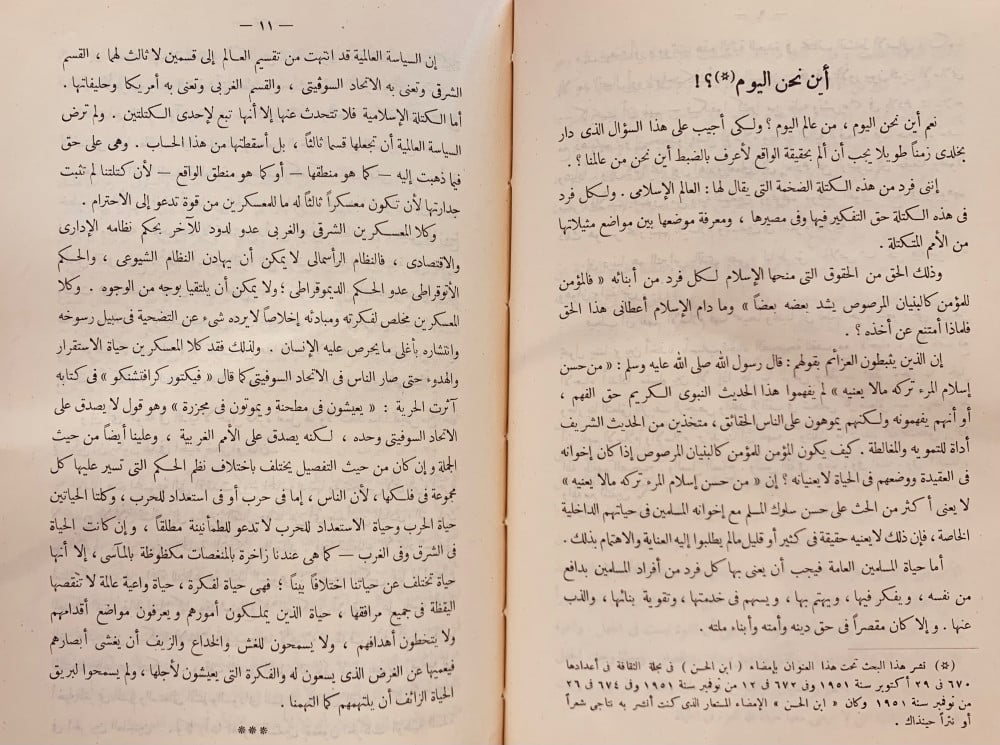 أين نحن اليوم(*)؟!
نعم أين نحن اليوم ، من عالم اليوم ؟ ولكى أجيب على هذا السؤال الذى دار
بخلدى زمناً طويلا يجب أن ألم بحقيقة الواقع لأعرف بالضبط أين نحن من عالمنا ؟ .
إننى فرد من هذه الكتلة الضخمة التى يقال لها : العالم الإسلامى . ولكل فرد
فى هذه الكتلة حق التفكير فيها وفى مصيرها ، ومعرفة موضعها بين مواضع مثيلاتها
من الأمم المتكتلة .
وذلك الحق من الحقوق التى منحها الإسلام لكل فرد من أبنائه « فالمؤمن
للمؤمن كالبنيان المرصوص يشد بعضه بعضاً » وما دام الإسلام أعطانى هذا الحق
فلماذا أمتنع عن أخذه ؟ .
إن الذين يثبطون العزائم بقولهم : قال رسول الله صلى الله عليه وسلم : « من حسن
إسلام المرء تركه مالا يعنيه » لم يفهموا هذا الحديث النبوى الكريم حق الفهم ،
أو أنهم يفهمونه ولكنهم يموهون على الناس الحقائق ، متخذين من الحديث الشريف
أداة للتمويه والمغالطة . كيف يكون المؤمن للمؤمن كالبنيان المرصوص إذا كان إخوانه
فى العقيدة ووضعهم فى الحياة لا يعنيانه ؟ إن « من حسن إسلام المرء تركه مالا يعنيه »
لا يعنى أكثر من الحث على حسن سلوك المسلم مع إخوانه المسلمين فى حياتهم الداخلية
الخاصة ، فإن ذلك لا يعنيه حقيقة فى كثير أو قليل مالم يطلبوا إليه العناية والاهتمام بذلك .
أما حياة المسلمين العامة فيجب أن يعنى بها كل فرد من أفراد المسلمين بدافع
من نفسه ، ويفكر فيها ، ويهتم بها ، ويسهم فى خدمتها ، وتقوية بنائها ، والذب
عنها . وإلا كان مقصراً فى حق دينه وأمته وأبناء ملته .
(*) نشر هذا البحث تحت هذا العنوان بإمضاء ( ابن الحسن ) فى مجلة الثقافة فى أعدادها
٦٧٠ فى ٢٩ أكتوبر سنة ١٩٥١ وفى ٦٧٢ فى ١٢ من نوفبر سنة ١٩٥١ وفى ٦٧٤ فى ٢٦
من نوفبر سنة ١٩٥١ وكان « ابن الحسن » الإمضاء المستعار الذى كنت أنشر به نتاجى شعراً
أو نثراً حينذاك .
— ١١ —
إن السياسة العالمية قد انتهت من تقسيم العالم إلى قسمين لا ثالث لهما ، القسم
الشرقى وتعنى به الاتحاد السوڤيتى ، والقسم الغربى وتعنى به أمريكا وحليفاتها .
أما الكتلة الإسلامية فلا تتحدث عنها إلا أنها تبع لإحدى الكتلتين . ولم ترض
السياسة العالمية أن تجعلها قسما ثالثاً ، بل أسقطتها من هذا الحساب . وهى على حق
فيما ذهبت إليه — كما هو منطقها — أو كما هو منطق الواقع — لأن كتلتنا لم تثبت
جدارتها لأن تكون معسكراً ثالثاً له ما للمعسكرين من قوة تدعو إلى الاحترام .
وكلا المعسكرين الشرقى والغربى عدو لدود للآخر بحكم نظامه الإدارى
والاقتصادى ، فالنظام الرأسمالى لا يمكن أن يهادن النظام الشيوعى ، والحكم
الأتوقراطى عدو الحكم الديموقراطى ؛ ولا يمكن أن يلتقيا بوجه من الوجوه . وكلا
المعسكرين مخلص لفكرته ومبادئه إخلاصاً لا يرده شىء عن التضحية فى سبيل رسوخه
وانتشاره بأغلى ما يحرص عليه الإنسان . ولذلك فقد كلا المعسكرين حياة الاستقرار
والهدوء حتى صار الناس فى الاتحاد السوڤيتى كما قال « ڤيكتور كرافتشنكو » فى كتابه
آثرت الحرية : « يعيشون فى مطحنة ويموتون فى مجزرة » وهو قول لا يصدق على
الاتحاد السوڤيتى وحده ، لكنه يصدق على الأمم الغربية ، وعلينا أيضاً من حيث
الجملة وإن كان من حيث التفصيل يختلف باختلاف نظم الحكم التى تسير عليها كل
مجموعة فى فلكها ، لأن الناس ، إما فى حرب أو فى استعداد للحرب ، وكلتا الحياتين
حياة الحرب وحياة الاستعداد للحرب لا تدعو للطمأنينة مطلقاً ، وإن كانت الحياة
فى الشرق وفى الغرب — كما هى عندنا زاخرة بالمنغصات مكظوظة بالمآسى ، إلا أنها
حياة تختلف عن حياتنا اختلافاً بيناً ؛ فهى حياة لفكرة ، حياة واعية عالمة لا تنقصها
اليقظة فى جميع مرافقها ، حياة الذين يملكون أمورهم ويعرفون مواضع أقدامهم
ولا يتخطون أهدافهم ، ولا يسمحون للغش والخداع والزيف أن يغشى أبصارهم
فيعميها عن الغرض الذى يسعون له والفكرة التى يعيشون لأجلها ، ولم يسمحوا لبريق
الحياة الزائف أن يلتهمهم كما التهمنا .
***